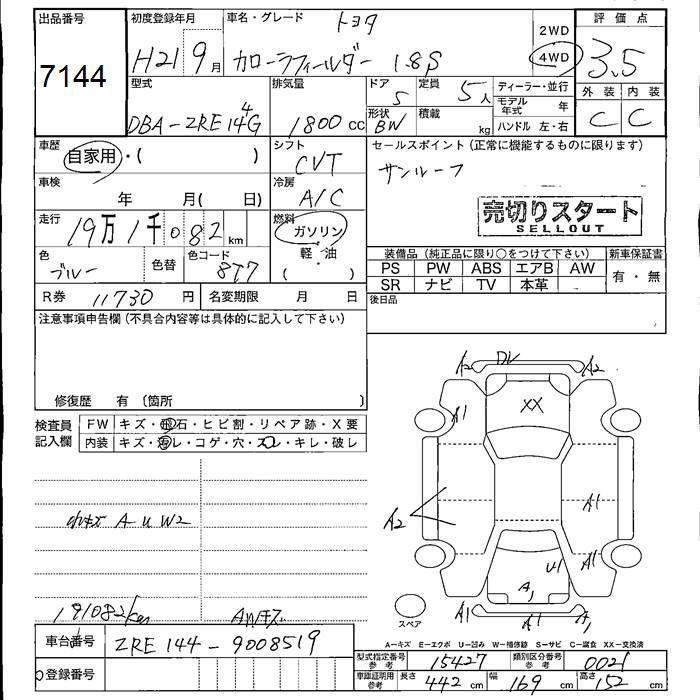 出品番号 初度登録年月 車名・グレード トヨタ 2WD 評価点
7144 H21 9月 カローラフィールダー 1.8S 4WD 3.5
型式 排気量 ドア 5 定員 5人 ディーラー・並行 外装 内装
DBA-ZRE144G 1800cc 形状 BW 積載 kg モデル年式 年 C C
ハンドル 左・右
車歴 自家用・( ) シフト CVT セールスポイント(正常に機能するものに限ります)
サンルーフ
車検 年 月( 日) 冷房 A/C
売切りスタート
SELLOUT
走行 19万1千082km 燃料 ガソリン
軽・油
( )
装備品(純正品に限り○をつけて下さい) 新車保証書
色 ブルー 色替 色コード 8T7 PS PW ABS エアB AW 有・無
SR ナビ TV 本革
R券 11730円 名変期限 月 日 後日品
注意事項申告欄(不具合内容等は具体的に記入して下さい)
修復歴 有(箇所 )
検査員記入欄 FW キズ・飛石・ヒビ割・リペア跡・X要
内装 キズ・汚レ・コゲ・穴・スレ・キレ・破レ
A2 A2
A1 XX
A2 A1
A1 U1 A1
A1
A1 A1 A1
スペア
A U W2
191082km AWキズ
A-キズ E-エクボ U-凹み W-補修跡 S-サビ C-腐食 XX-交換済
車台番号 ZRE144-9008519
型式指定番号参考 15427 類別区分番号参考 0021
登録番号
車庫証明用参考 長さ 442cm 幅 169cm 高さ 152cm